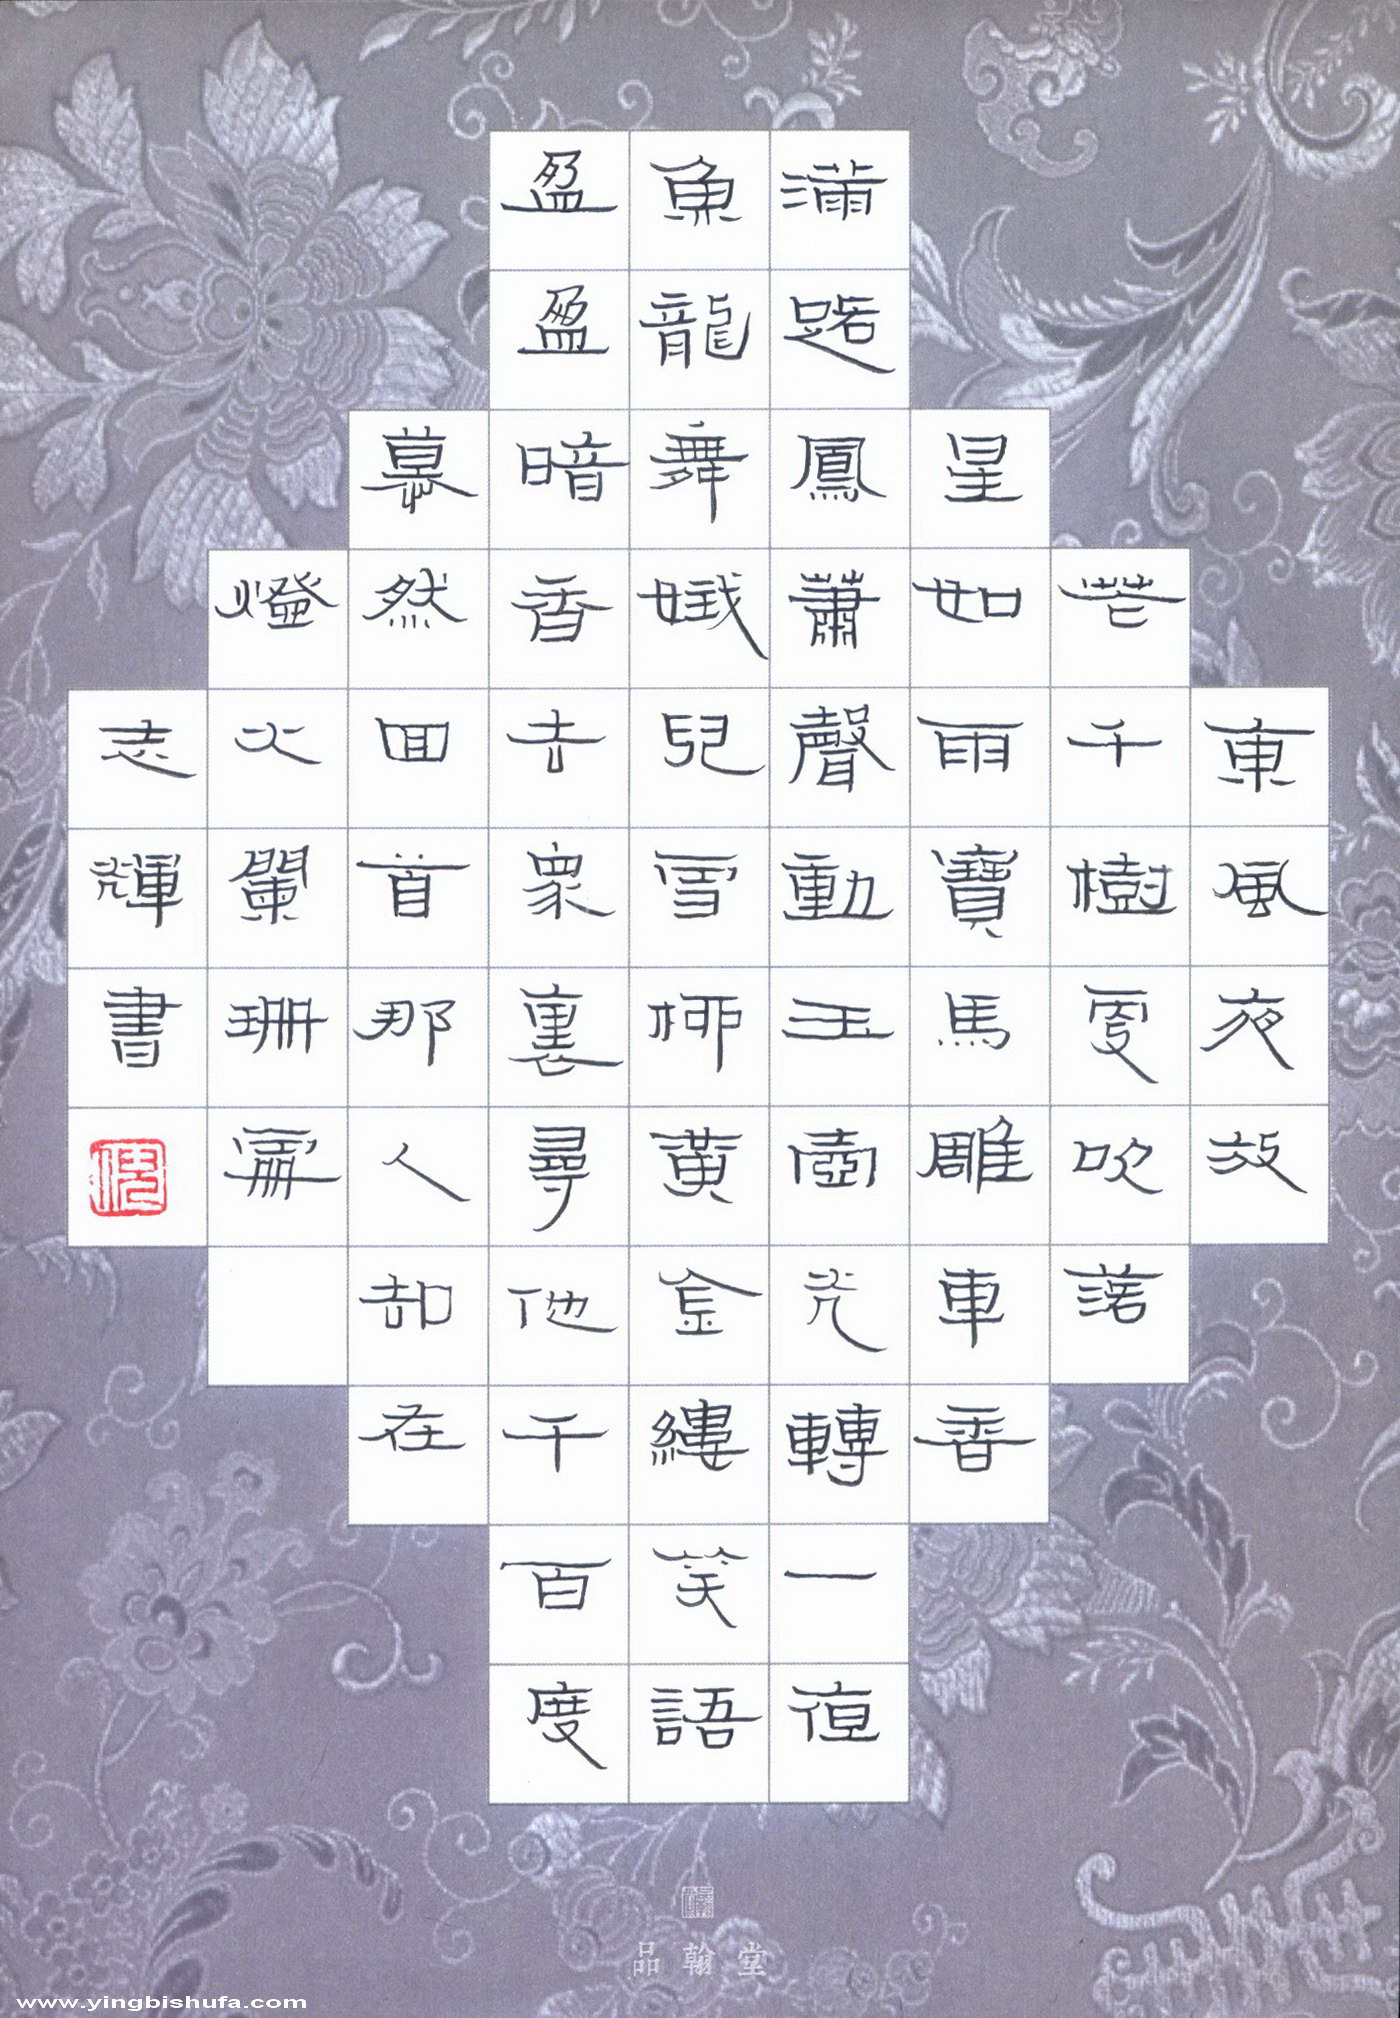 東風夜放
花千樹更吹落
星如雨寶馬雕車香
滿路鳳蕭聲動玉壺光轉一夜
魚龍舞娥兒雪柳黃金縷笑語
盈盈暗香去衆裏尋他千百度
慕然回首那人却在
燈火闌珊處
志輝書
品翰堂
www.yingbishufa.com